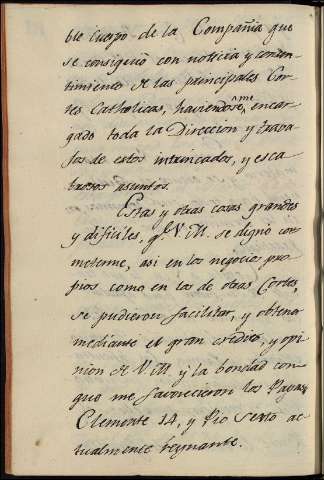 ble cuerpo de la Compañia que
se consiguió con noticia y consen-
timiento de las principales Cor-
tes Catholicas, haviendoseme encar-
gado toda la Direccion y traba-
jos de estos intrincados, y esca-
brosos asuntos.
Estas y otras cosas grandes
y dificiles, q.e V. M. se dignó co-
meterme, asi en los negocios pro-
pios como en los de otras Cortes,
se pudieron facilitar, y obtener
mediante el gran credito, y opi-
nion de V. M. y la bondad con
que me favorecieron los Papas
Clemente 14, y Pio Sexto ac-
tualmente reynante.